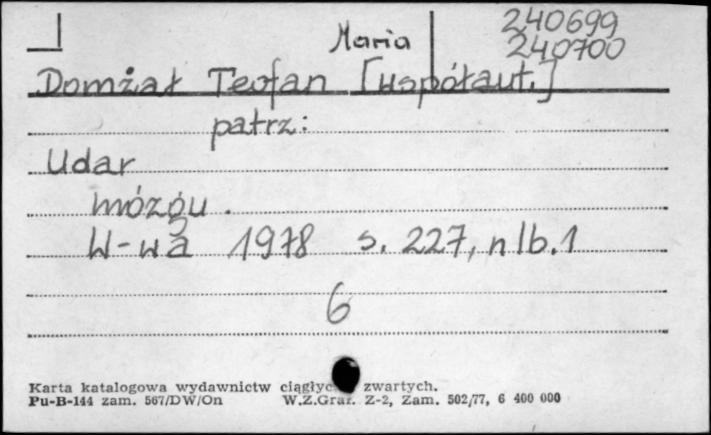 240699
Maria 240700
Domżał Teofan [współaut.]
patrz:
Udar
mózgu.
W-wa 1978 s. 227, nlb. 1
6
Karta katalogowa wydawnictw zwartych.
Pu-B-144 zam. 567/DW/On W.Z.Graf. Z-2, Zam. 502/77, 6 400 000